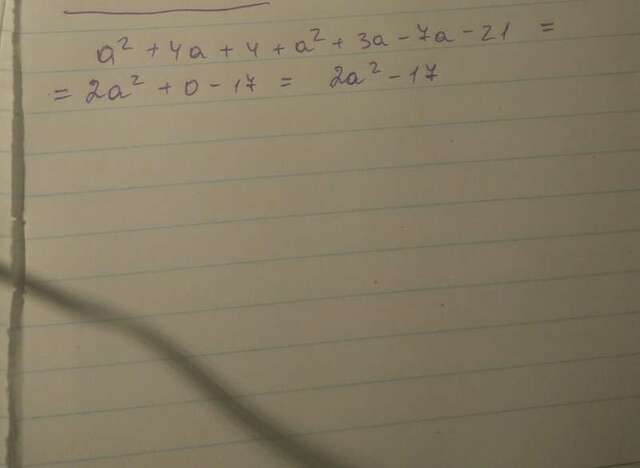 a² + 4a + 4 + a² + 3a - 7a - 21 =
= 2a² + 0 - 17 = 2a² - 17